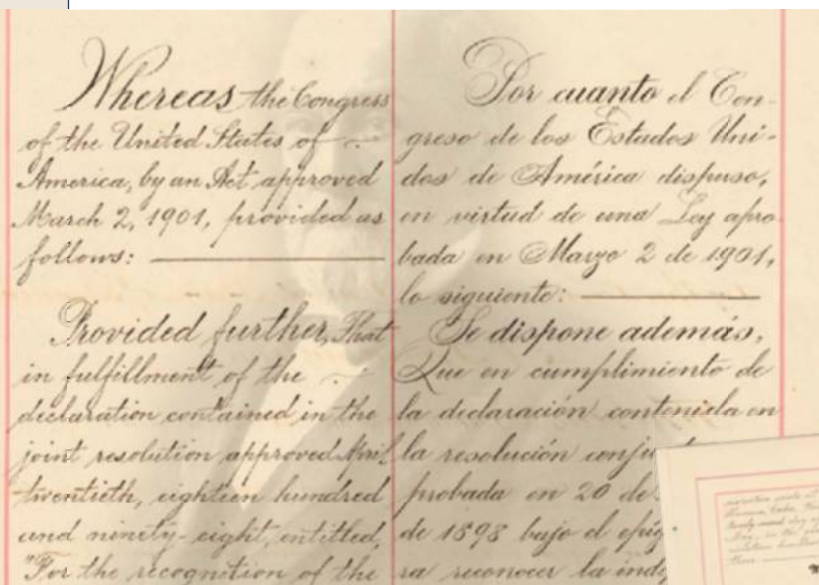 Whereas the Congress
of the United States of
America, by an Act approved
March 2, 1901, provided as
follows:
Provided further, That
in fulfillment of the
declaration contained in the
joint resolution approved April
twentieth, eighteen hundred
and ninety-eight, entitled,
"For the recognition of the
Por cuanto el Con-
greso de los Estados Uni-
dos de América dispuso,
en virtud de una Ley apro-
bada en Marzo 2 de 1901,
lo siguiente:
Se dispone además,
Que en cumplimiento de
la declaración contenida en
la resolución
probada en 20 de
de 1898 bajo el
ra reconocer la